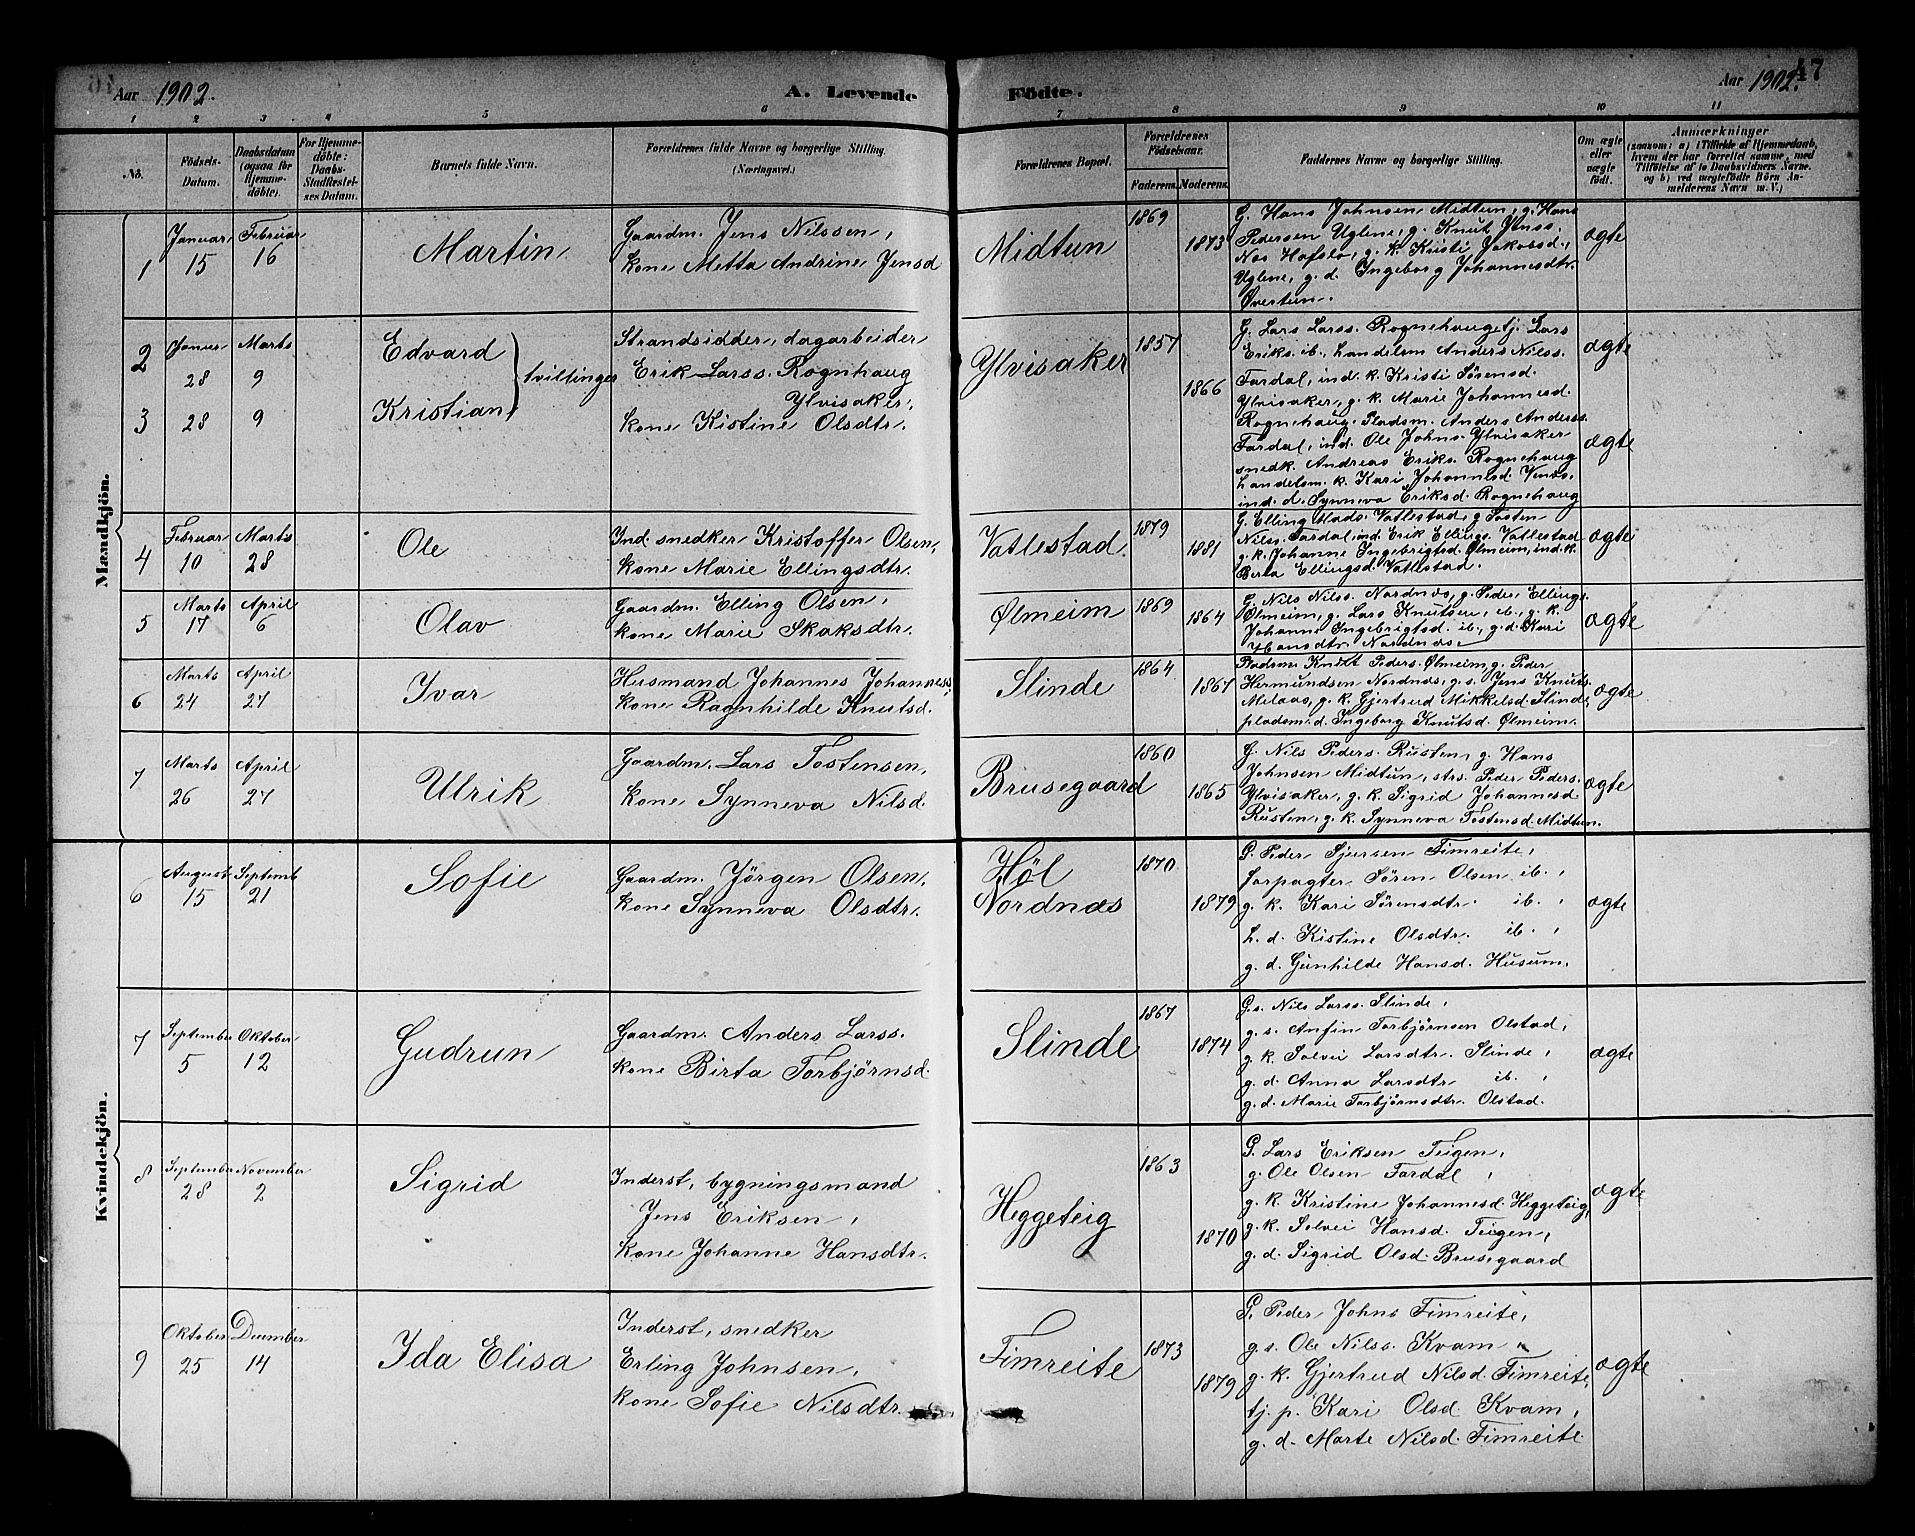 Aar 1902.
A. Levende Födte.
Aar 1902.
47
1 2 3 4 5 6 7 8 9 10 11
No.
Födsels-Datum.
Daabsdatum (ogsaa for Hjemme-döbte).
For Hjemme-döbte: Daabs-Stadfæstel-ses Datum.
Barnets fulde Navn.
Forældrenes fulde Navne og borgerlige Stilling.
(Næringsvei.)
Forældrenes Bopæl.
Forældrenes Födselsaar.
Faderens. Moderens.
Faddernes Navne og borgerlige Stilling.
Om ægte eller uægte födt.
Anmærkninger
(saasom: a) i Tilfælde af Hjemmedaab,
hvem der har forrettet samme, med
Tilföielse af to Daabsvidners Navne.
og b) ved uægtefödte Börn An-
melderens Navn m. V.)
Mandkjön.
1
Januar 15
Februar 16
Martin
Gaardm. Jens Nilssen,
kone Metta Andrine Jensd
Midtun
1869
1873
G. Hans Johnsen Midtun, g. Hans
Pedersen Uglene, g. Knut Jens.
Nes Hafslo, g. k. Kristi Jakobsd.,
Uglene, g. d. Ingeborg Johannesdtr.
Øvertun.
ægte
2
Januar 28
Marts 9
Edvard
3
28
9
Kristian
tvillinger
Strandsidder, dagarbeider
Erik Larss. Rognhaug
Ylvisaker,
kone Kistine Olsdtr.
Ylvisaker
1857
1866
G. Lars Larss. Rognehaug tj. Lars
Eriks. ib., Landelsm Anders Nilss.
Fardal, ind. k. Kristi Sörensd.
Ylvisaker, g. k. Marie Johannesd.
Rognehaug. Pladsm. Anders Anderss.
Fardal, ind. Ole Johns. Ylvisaker
snedk. Andreas Eriks. Rognehaug
Landelsm. k. Kari Johannesd.
ind. d. Synneva Eriksd. Rognehaug
ægte
ægte
4
Februar 10
Marts 28
Ole
Ind. snedker Kristoffer Olsen,
kone Marie Ellingsdtr.
Vatlestad.
1879
1881
G. Elling Mads. Vatlestad, g. Tosten
Nilss. Fardal, ind. Erik Ellings. Vatlestad
g. k. Johanne Ingebrigtsd. Ølmeim, ind. k.
Berta Ellingsd. Vatlestad.
ægte
5
Marts 17
April 6
Olav
Gaardm. Elling Olsen,
kone Marie Skaksdtr.
Ølmeim
1869
1864
G. Nils Nilss. Nordnæs, g. Peder Ellings.
Ølmeim, g. Lars Knutsen, ib., g. k.
Johanne Ingebrigtsd. ib., g. d. Kari
Hansdtr. Nordnæs.
ægte
6
Marts 24
April 27
Ivar
Husmand Johannes Johanness.
kone Ragnhilde Knutsd.
Slinde
1864
1867
Pladsm. Knut Peders. Ølmeim, g. Peder
Hermundsen Nordnæs, g. s. Jens Knuts.
Melaas, g. k. Gjertrud Mikkelsd. Slinde,
pladsm. d. Ingeborg Knutsd. Ølmeim.
ægte
7
Marts 26
April 27
Ulrik
Gaardm. Lars Tostensen,
kone Synneva Nilsd.
Brusegaard
1860
1865
G. Nils Peders. Rusten, g. Hans
Johnsen Midtun, strs. Peder Peders.
Ylvisaker, g. k. Sigrid Johannesd
Rusten, g. k. Synneva Tostensd. Midtun.
ægte
Kvindekjön.
6
August 15
Septemb 21
Sofie
Gaardm. Jörgen Olsen,
kone Synneva Olsdtr.
Høl
Nordnæs
1870
1879
G. Peder Sjursen Fimreite,
Jorpagter Sören Olsen ib.,
g. k. Kari Sörensdtr. ib.,
L. d. Kistine Olsdtr. ib.,
g. d. Gunhilde Hansd. Husum,
ægte
7
September 5
Oktober 12
Gudrun
Gaardm. Anders Larss.
kone Birta Torbjörnsd.
Slinde
1867
1874
G. s. Nils Larss. Slinde,
g. s. Anfin Torbjörnsen Olstad,
g. k. Solvei Larsdtr. Slinde,
g. d. Anna Larsdtr ib.,
g. d. Marie Torbjörnsdtr. Olstad.
ægte
8
September 28
November 2
Sigrid
Inderst, bygningsmand
Jens Eriksen,
kone Johanne Hansdtr.
Heggeteig
1863
1870
G. Lars Eriksen Teigen,
g. Ole Olsen Fardal,
g. k. Kristine Johannesd. Heggeteig,
g. k. Solvei Hansd. Teigen,
g. d. Sigrid Olsd. Brusegaard
ægte
9
Oktober 25
December 14
Ida Elisa
Inderst, snedker
Erling Johnsen,
kone Sofie Nilsdtr.
Fimreite
1873
1879
G. Peder Johns Fimreite,
g. s. Ole Nilss. Kvam,
g. k. Gjertrud Nilsd. Fimreite,
tj. p. Kari Olsd. Kvam,
g. d. Marte Nilsd. Fimreite
ægte